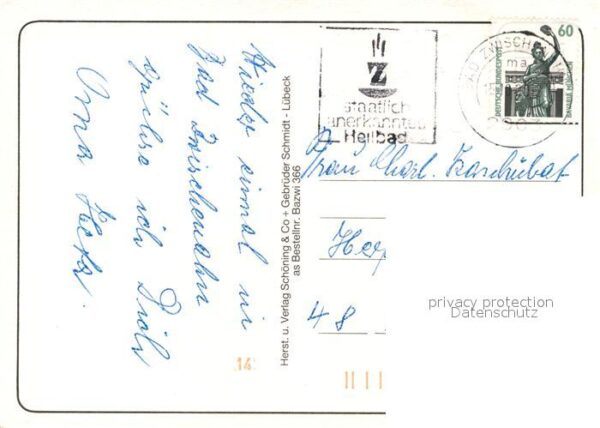 Wieder einmal in
Bad Zwischenahn
grüßre ich Dich
Oma Herta.
Herst. u. Verlag Schöning & Co + Gebrüder Schmidt - Lübeck
as Bestellnr. Bazwi 366
Z
staatlich
anerkanntes
Heilbad
60
DEUTSCHE BUNDESPOST
BAVARIA MÜNCHEN
Frau Charl. Kaschubat
48
14
privacy protection
Datenschutz